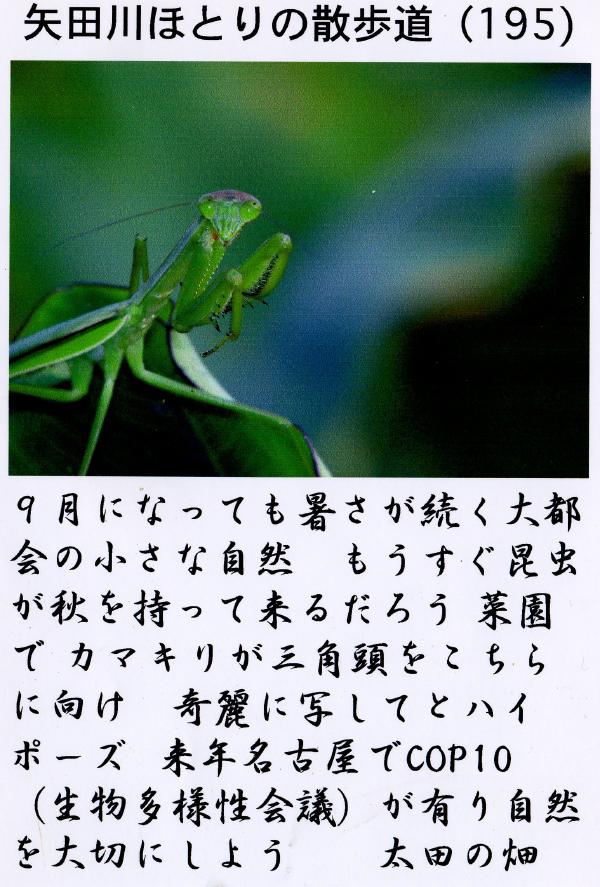 矢田川ほとりの散歩道（195）
９月になっても暑さが続く大都
会の小さな自然　もうすぐ昆虫
が秋を持って来るだろう 菜園
で カマキリが三角頭をこちら
に向け　奇麗に写してとハイ
ポーズ　来年名古屋でCOP10
（生物多様性会議）が有り自然
を大切にしよう　　太田の畑